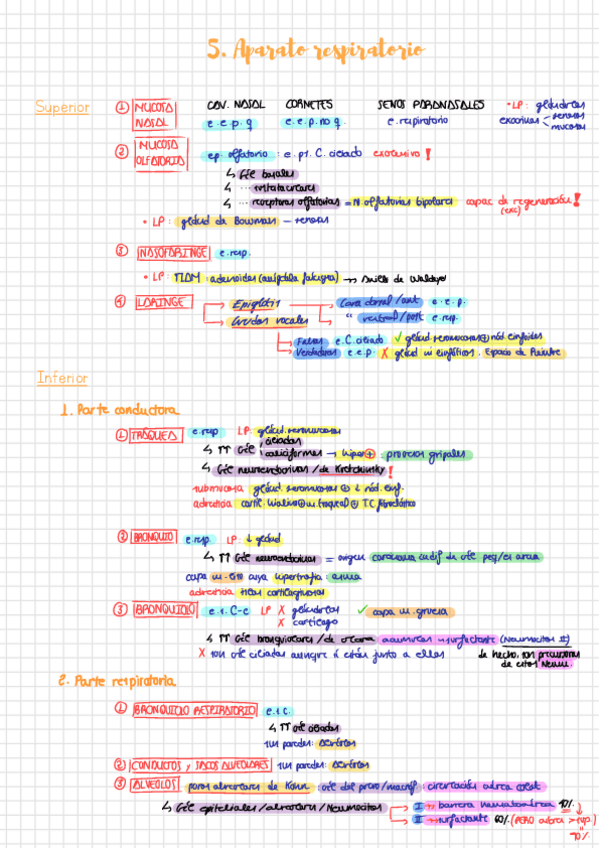 5. Aparato respiratorio
Superior
① MUCOSA NASAL
CAV. NASAL CORNETES SENOS PARANASALES • LP: glándulas
e.e.p.q e.e.p.no q. e.respiratorio exocrinas serosas mucosas
② MUCOSA OLFATORIA
ep. olfatorio: e.ps. C. ciliado exclusivo!
↳ Cél basales
↳ ··· sustentaculares
↳ ··· receptoras olfatorias = N. olfatorias bipolares capac de regeneración! (exc)
• LP: glánd de Bowman - serosas
③ NASOFARINGE e.resp.
• LP: TLDM: adenoides (amígdala faríngea) → Anillo de Waldeyer
④ LARINGE
Epiglotis Cara dorsal/ant e.e.p.
" ventral/post e.resp.
Cuerdas vocales
Falsas e.C.ciliado ✓ gland.seromucosas ⊕ nód linfoides
Verdaderas e.e.p. X gland ni linfáticos. Espacio de Reinke
Inferior
1. Parte conductora
① TRÁQUEA e.resp LP: glánd.seromucosas
↳ ↑↑ Cél ciliadas
caliciformes → hiper⊕: procesos gripales
↳ Cél neuroendocrinas/de Kultchinsky!
submucosa gland. seromucosas ⊕ ↓ nód. linf.
adventicia cartíl. hialino ⊕ m. traqueal ⊕ T.C. fibroelástico
② BRONQUIO e.resp. LP: ↓ gland
↳ ↑↑ Cél neuroendocrinas = origen carcinoma indif de cél peq/en avena
capa m. cuya hipertrofia: asma
adventicia tiras cartilaginosas
③ BRONQUIOLO e.s.C-c LP X glándulas ✓ capa m. gruesa
X cartílago
↳ ↑↑ Cél bronquiolares/de Clara acumulan surfactante (Neumocitos II)
X son cél ciliadas aunque sí están junto a ellas
de hecho, son precursoras de estos Neum.
2. Parte respiratoria
① BRONQUIOLO RESPIRATORIO e.s.C.
↳ ↑↑ cél ciliadas
sus paredes: alvéolos
② CONDUCTOS y SACOS ALVEOLARES sus paredes: alvéolos
③ ALVEOLOS poros alveolares de Kohn: cél del polvo/macróf.: circulación aérea colat.
↳ Cél epiteliales/alveolares/Neumocitos
I → barrera hematoaérea 40%
II → surfactante 60% (PERO cubren > sup.)